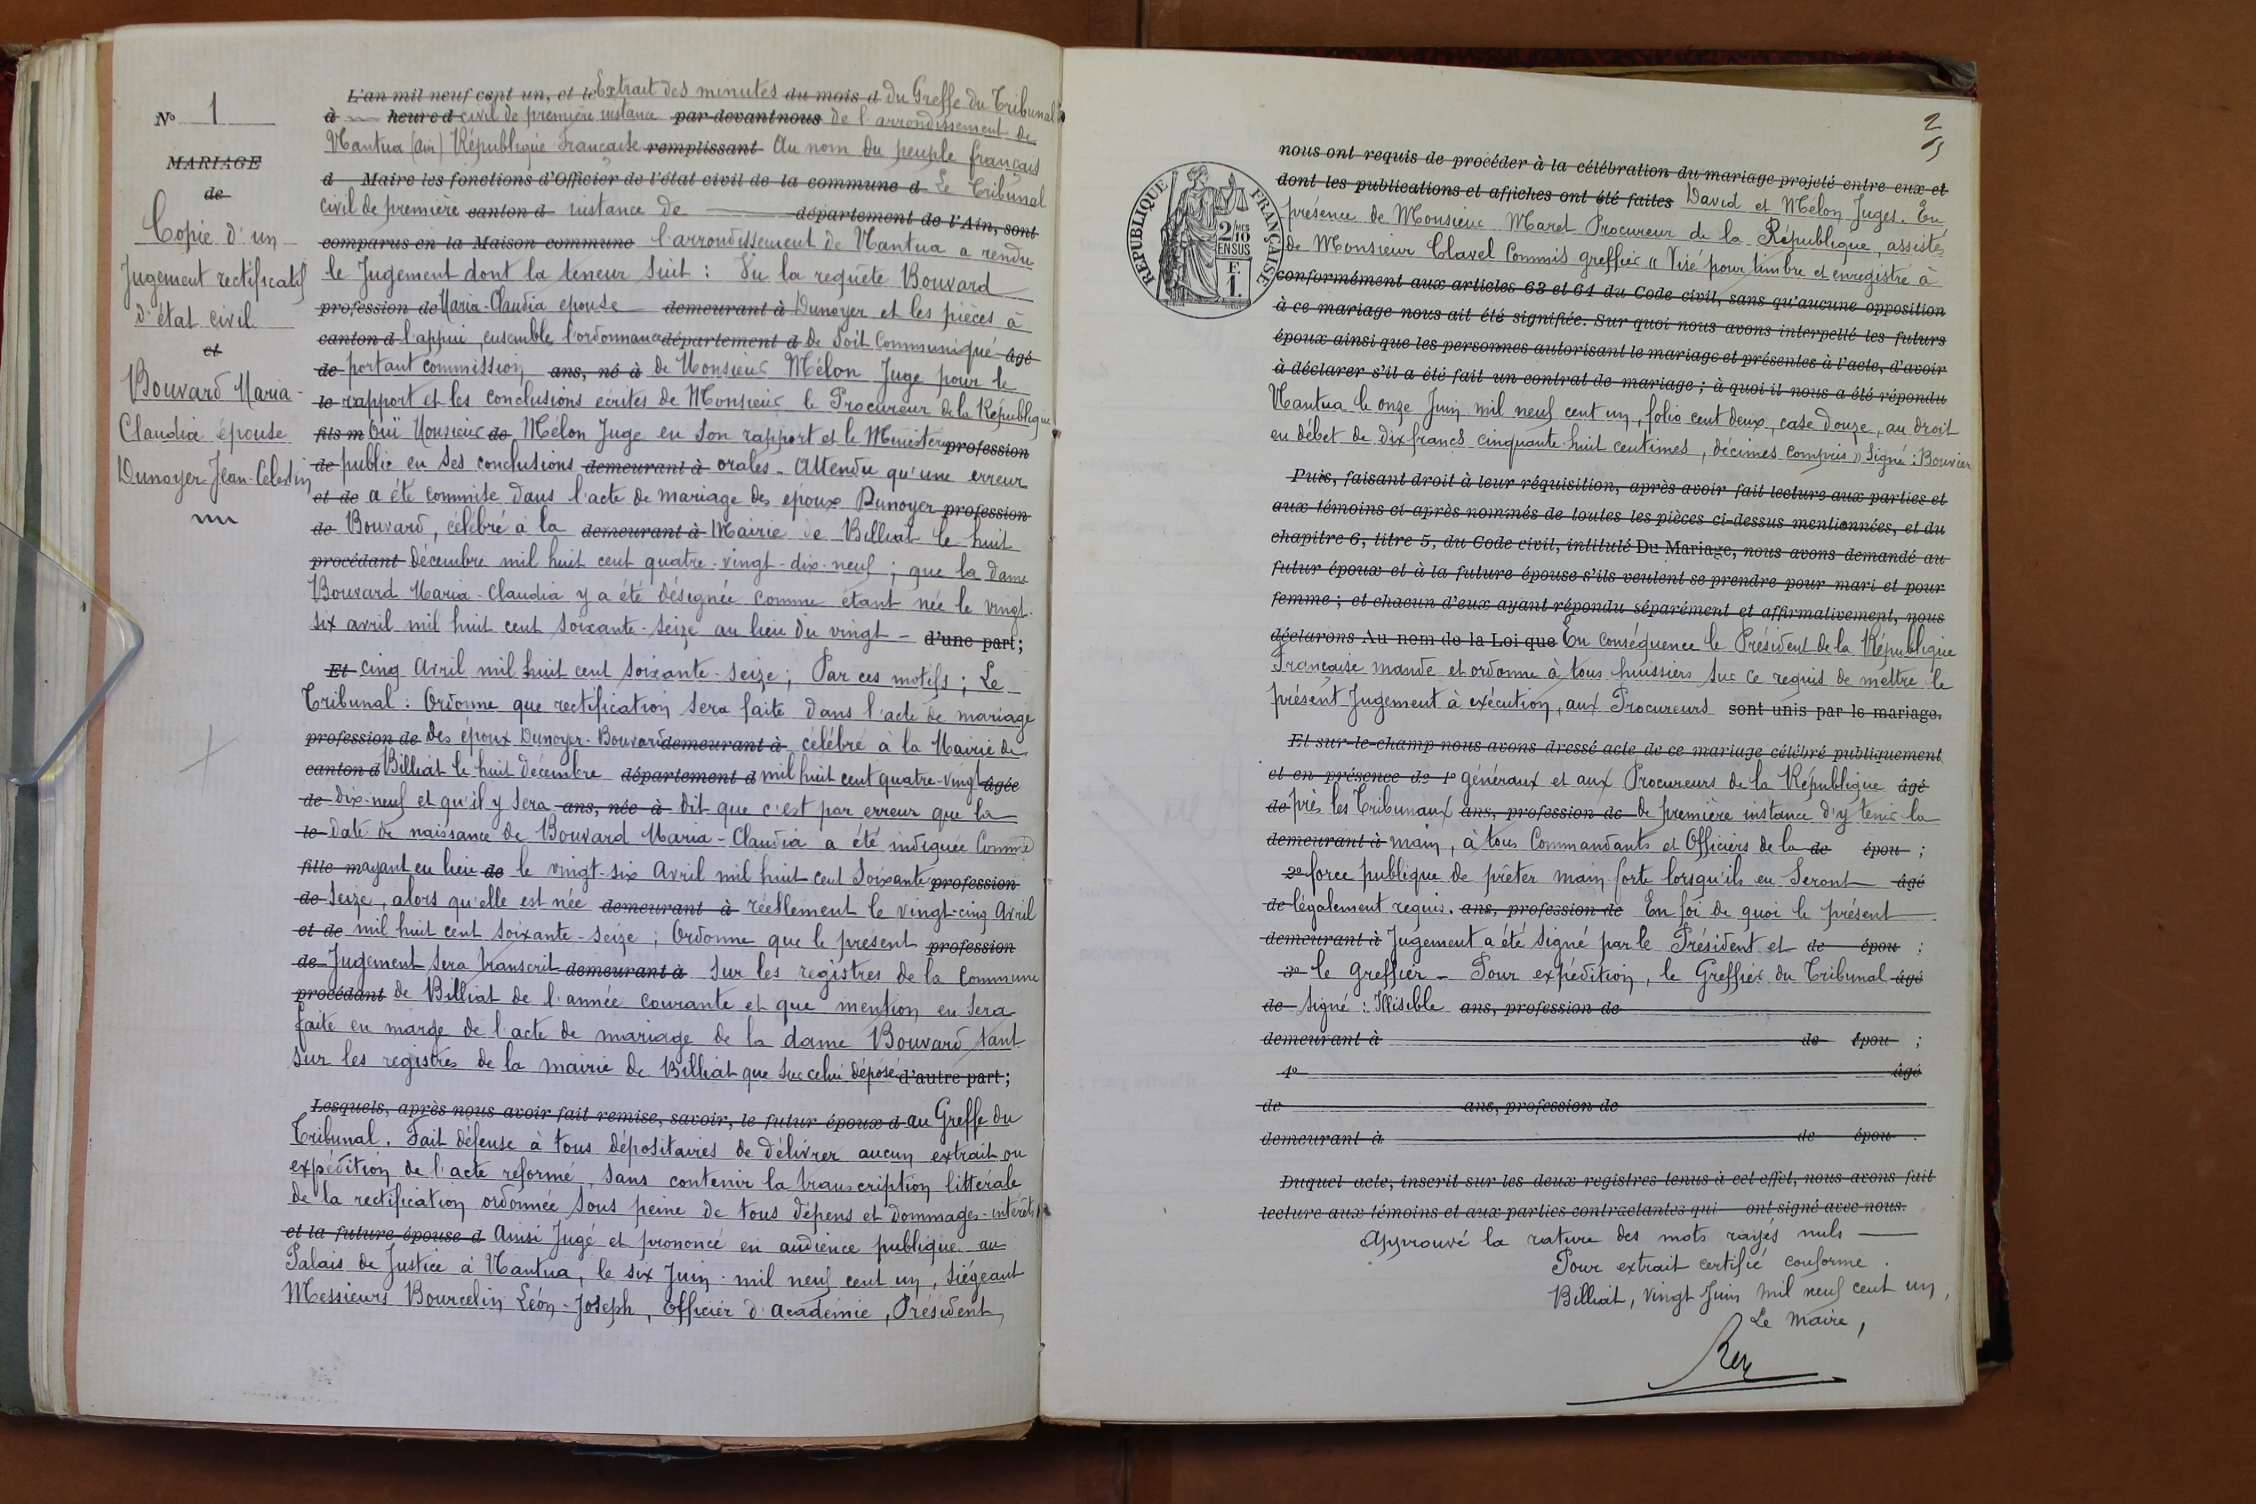 N° 1
MARIAGE
de
Copie d'un
Jugement rectificatif
d'état civil
et
Bouvard Maria-
Claudia épouse
Dunoyer Jean-Célestin
L'an mil neuf cent un, et le Extrait des minutes du mois d du Greffe du Tribunal
à heure d civil de première instance par devant nous de l'arrondissement de
Nantua (Ain) République Française remplissant Au nom du peuple français
d Maire les fonctions d'Officier de l'état civil de la commune d Le Tribunal
civil de première canton d instance de département de l'Ain, sont
comparus en la Maison commune l'arrondissement de Nantua a rendu
le Jugement dont la teneur suit : Vu la requête Bouvard
profession de Maria-Claudia épouse demeurant à Dunoyer et les pièces à
canton d l'appui ensemble l'ordonnance département d de Soit Communiqué âgé
de portant commission ans, né à de Monsieur Mélon Juge pour le
le rapport et les conclusions écrites de Monsieur le Procureur de la République
fils m Ouï Monsieur de Mélon Juge en son rapport et le Ministère profession
de public en ses conclusions demeurant à orales - Attendu qu'une erreur
et de a été commise dans l'acte de mariage des époux Dunoyer profession
de Bouvard, célébré à la demeurant à Mairie de Billiat le huit
procédant décembre mil huit cent quatre-vingt-dix-neuf ; que la dame
Bouvard Maria-Claudia y a été désignée comme étant née le vingt-
six avril mil huit cent soixante-seize au lieu du vingt - d'une part;
Et cinq Avril mil huit cent soixante-seize ; Par ces motifs ; Le
Tribunal : Ordonne que rectification sera faite dans l'acte de mariage
profession de des époux Dunoyer-Bouvard demeurant à célébré à la Mairie de
canton d Billiat le huit décembre département d mil huit cent quatre-vingt âgée
de dix-neuf et qu'il y sera ans, née à dit que c'est par erreur que la
le date de naissance de Bouvard Maria-Claudia a été indiquée Comme
fille m ayant eu lieu de le vingt-six Avril mil huit cent Soixante profession
de Seize, alors qu'elle est née demeurant à réellement le vingt-cinq Avril
et de mil huit cent soixante-seize ; Ordonne que le présent profession
de Jugement sera transcrit demeurant à sur les registres de la Commune
procédant de Billiat de l'année courante et que mention en sera
faite en marge de l'acte de mariage de la dame Bouvard tant
sur les registres de la mairie de Billiat que sur celui déposé d'autre part;
Lesquels, après nous avoir fait remise, savoir, le futur époux d au Greffe du
Tribunal. Fait défense à tous dépositaires de délivrer aucun extrait ou
expédition de l'acte reformé, sans contenir la transcription littérale
de la rectification ordonnée sous peine de tous dépens et dommages-intérêts
et la future épouse d Ainsi Jugé et prononcé en audience publique au
Palais de Justice à Nantua, le six Juin mil neuf cent un, siégeant
Messieurs Bourcelin Léon-Joseph, Officier d'académie, Président,
2
RÉPUBLIQUE FRANÇAISE
2/10 MES
EN SUS
F.
1.
nous ont requis de procéder à la célébration du mariage projeté entre eux et
dont les publications et affiches ont été faites David et Mélon Juges. En
présence de Monsieur Maret Procureur de la République, assisté
de Monsieur Clavel Commis greffier « Visé pour timbre et enregistré à
conformément aux articles 63 et 64 du Code civil, sans qu'aucune opposition
à ce mariage nous ait été signifiée. Sur quoi nous avons interpellé les futurs
époux ainsi que les personnes autorisant le mariage et présentes à l'acte, d'avoir
à déclarer s'il a été fait un contrat de mariage ; à quoi il nous a été répondu
Nantua le onze Juin mil neuf cent un, folio cent deux, case douze, au droit
en débet de dix francs cinquante-huit centimes, décimes compris » Signé : Bouvier
Puis, faisant droit à leur réquisition, après avoir fait lecture aux parties et
aux témoins ci-après nommés de toutes les pièces ci-dessus mentionnées, et du
chapitre 6, titre 5, du Code civil, intitulé Du Mariage, nous avons demandé au
futur époux et à la future épouse s'ils veulent se prendre pour mari et pour
femme ; et chacun d'eux ayant répondu séparément et affirmativement, nous
déclarons Au nom de la Loi que En conséquence le Président de la République
Française mande et ordonne à tous huissiers sur ce requis de mettre le
présent Jugement à exécution, aux Procureurs sont unis par le mariage.
Et sur-le-champ nous avons dressé acte de ce mariage célébré publiquement
et en présence de 1° généraux et aux Procureurs de la République âgé
de près les Tribunaux ans, profession de de première instance d'y tenir la
demeurant à main, à tous Commandants et Officiers de la de épou ;
2° force publique de prêter main forte lorsqu'ils en Seront âgé
de légalement requis. ans, profession de En foi de quoi le présent
demeurant à Jugement a été signé par le Président et de épou ;
3° le greffier - Pour expédition, le Greffier du Tribunal âgé
de Signé : Illisible ans, profession de
demeurant à de épou ;
4° âgé
de ans, profession de
demeurant à de épou .
Duquel acte, inscrit sur les deux registres tenus à cet effet, nous avons fait
lecture aux témoins et aux parties contractantes qui ont signé avec nous.
Approuvé la rature des mots rayés nuls
Pour extrait certifié conforme.
Billiat, vingt Juin mil neuf cent un,
Le Maire,
Rey